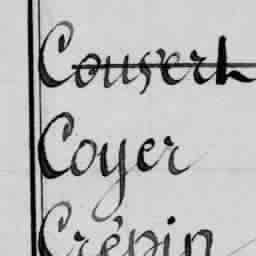 Couvert
Coyer
Crépin